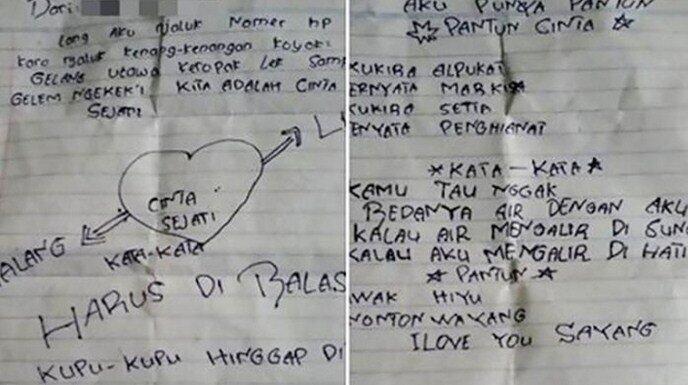 Dari:
Long Aku njaluk Nomer hp
karo njaluk kenang-kenangan koyok:
GELANG utawa ketopak Lek Samp
GELEM NGEKEK'I KITA ADALAH CINTA
SEJATI
CINTA
SEJATI
ALANG
KATA-KATA
HARUS DI BALAS
KUPU-KUPU HINGGAP DI
AKU PUNYA PANTUN
PANTUN CINTA
KUKIRA ALPUKAT
ERNYATA MARKISA
KUKIRA SETIA
ENYATA PENGHIANAT
*KATA-KATA*
KAMU TAU NGGAK
BEDANYA AIR DENGAN AKU
KALAU AIR MENGALIR DI SUN
KALAU AKU MENGALIR DI HATI
*PANTUN*
AWAK HIYU
NONTON WAYANG
I LOVE YOU SAYANG